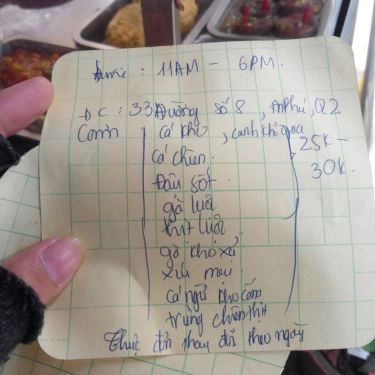 : 11AM - 6PM.
ĐC : 33 Đường số 8, An Phú, Q2
Cơm cá kho, canh khổ qua 25K -
cá chiên. 30K.
Đậu sốt
gà luộc
thịt luộc
gà kho xả
xíu mại
cá ngừ kho cơm
trứng chiên thịt
Thực đơn thay đổi theo ngày